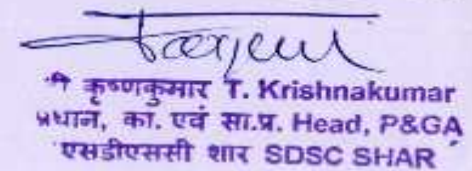 कृष्णकुमार T. Krishnakumar
प्रधान, का. एवं सा.प्र. Head, P&GA
एसडीएससी शार SDSC SHAR